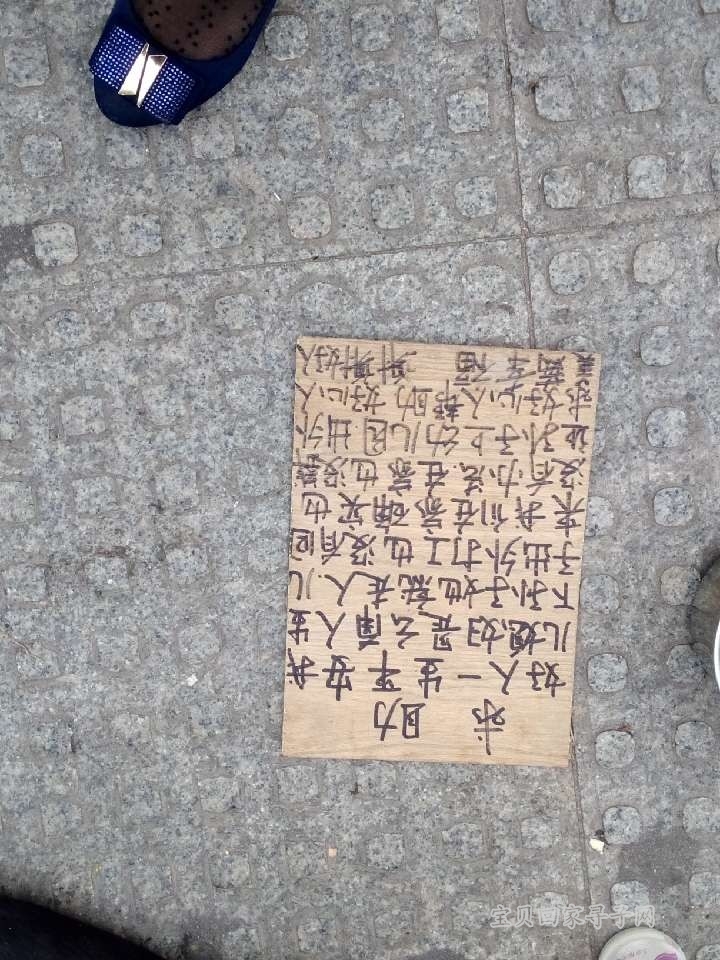 求助
好人一生平安我
儿媳妇是云南人生
下孙子她就走人.儿
子出外打工也没有回
来我们在家确实也
没有办法.在家也没钱
让孙子上幼儿园出外
求好心人帮助好心人
美满幸福 谢谢好人
宝贝回家寻子网